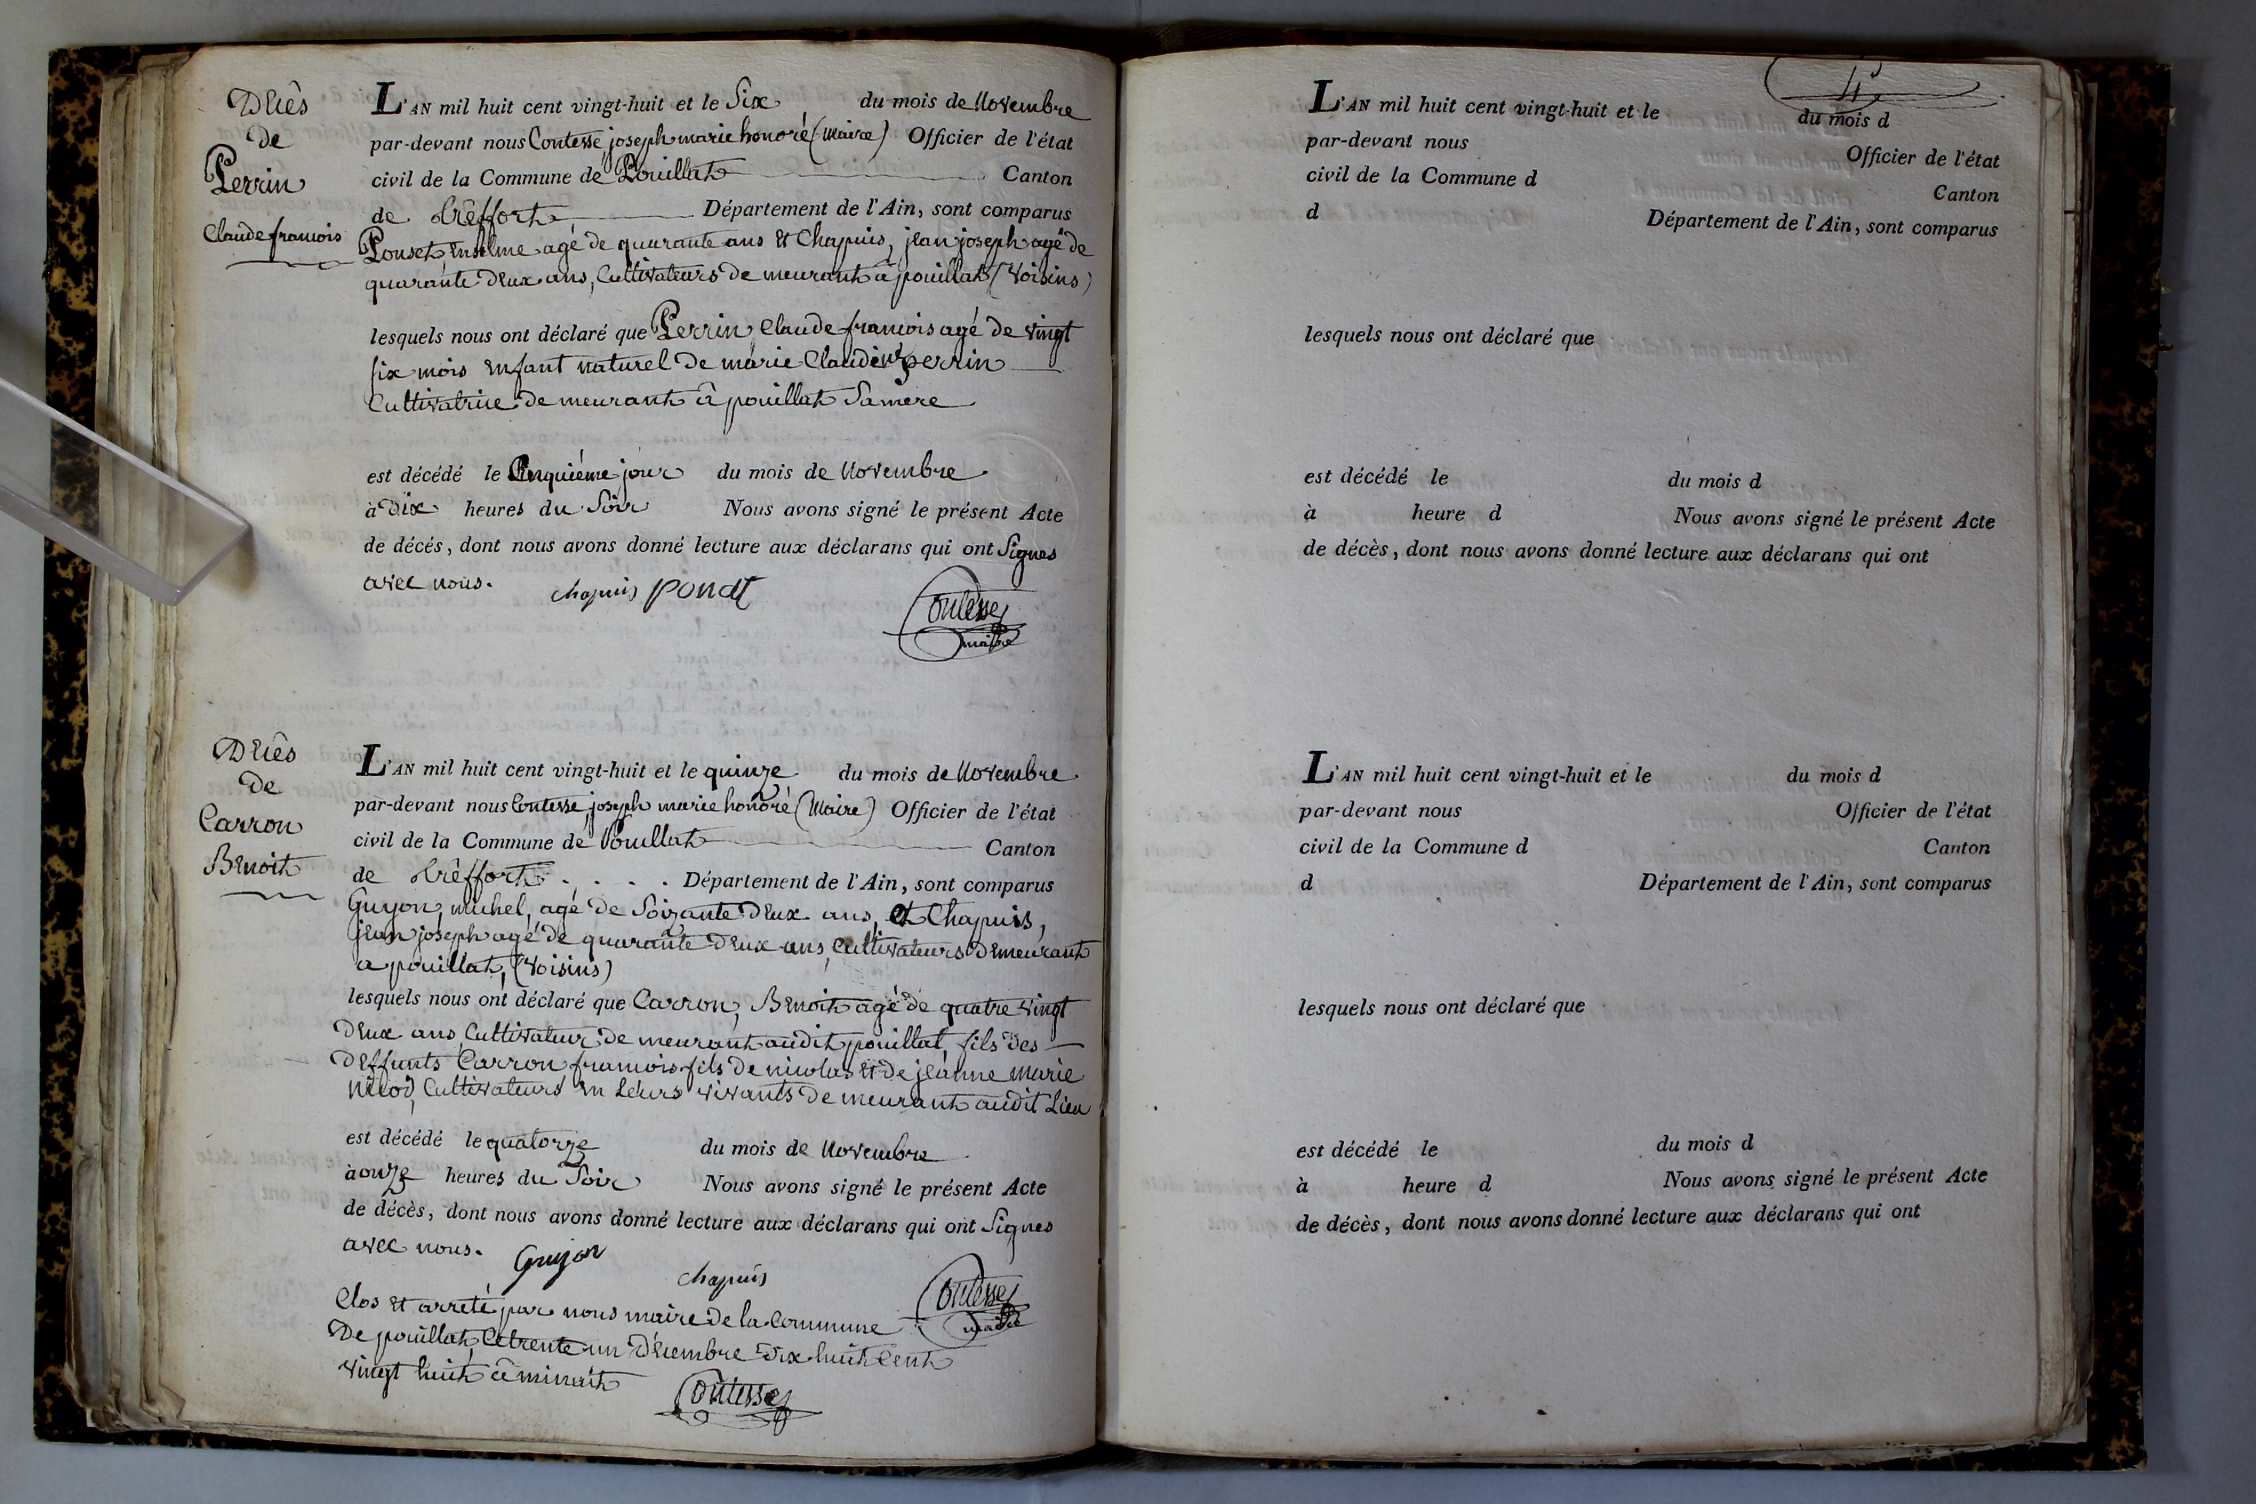 Décès
de
Perrin
Claude francois
L'AN mil huit cent vingt-huit et le Six du mois de Novembre
par-devant nous Contesse joseph marie honoré (Maire) Officier de l'état
civil de la Commune de Pouillat Canton
de Trêffort Département de l'Ain, sont comparus
Enselme agé de quarante ans Et Chapuis, jean joseph agé de
quarante Deux ans, Cultivateurs de meurant à pouillat (Voisins)
lesquels nous ont déclaré que Perrin, Claude francois agé de vingt
six mois Enfant naturel de marie Claudine perrin
Cultivatrice de meurant à pouillat Sa mère
est décédé le Cinquiéme jour du mois de Novembre
à Dix heures du Soir Nous avons signé le présent Acte
de décés, dont nous avons donné lecture aux déclarans qui ont Signes
avec nous.
chapuis
Contesse
maire
Décès
de
Carron
Benoit
L'AN mil huit cent vingt-huit et le quinze du mois de Novembre
par-devant nous Contesse, joseph marie honoré (Maire) Officier de l'état
civil de la Commune de Pouillat Canton
de Trêffort . . . . Département de l'Ain, sont comparus
Guyon, michel, agé de Soizante Deux ans, Et Chapuis,
jean joseph agé de quarante Deux ans, Cultivateurs Demeurant
a pouillat, (Voisins)
lesquels nous ont déclaré que Carron, Benoit agé de quatre vingt
Deux ans, Cultivateur de meurant audit pouillat, fils des
Deffunts Carron francois fils de nicolas et de jeanne marie
Nicod, Cultivateurs En Leurs vivants de meurant audit Lieu
est décédé le quatorze du mois de Novembre
à onze heures du Soir Nous avons signé le présent Acte
de décès, dont nous avons donné lecture aux déclarans qui ont Signes
avec nous.
Guyon
chapuis
Contesse
maire
Clos et arreté par nous maire de la Commune
De pouillat, Ce trente un Décembre Dix huit Cent
vingt huit à minuit
Contesse
L'AN mil huit cent vingt-huit et le du mois d
par-devant nous Officier de l'état
civil de la Commune d Canton
d Département de l'Ain, sont comparus
lesquels nous ont déclaré que
est décédé le du mois d
à heure d Nous avons signé le présent Acte
de décès, dont nous avons donné lecture aux déclarans qui ont
L'AN mil huit cent vingt-huit et le du mois d
par-devant nous Officier de l'état
civil de la Commune d Canton
d Département de l'Ain, sont comparus
lesquels nous ont déclaré que
est décédé le du mois d
à heure d Nous avons signé le présent Acte
de décès, dont nous avons donné lecture aux déclarans qui ont